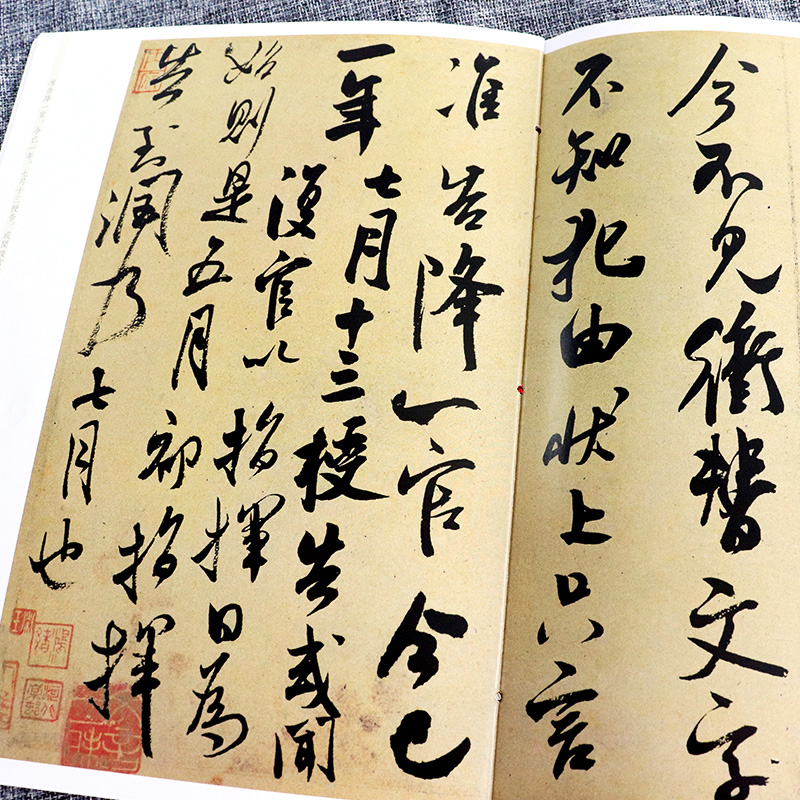 今不見衝替文字
不知犯由状上只言
准告降一官今已
一年七月十三授告或聞
復官以指揮日為
始則是五月部指揮
告至潤乃七月也